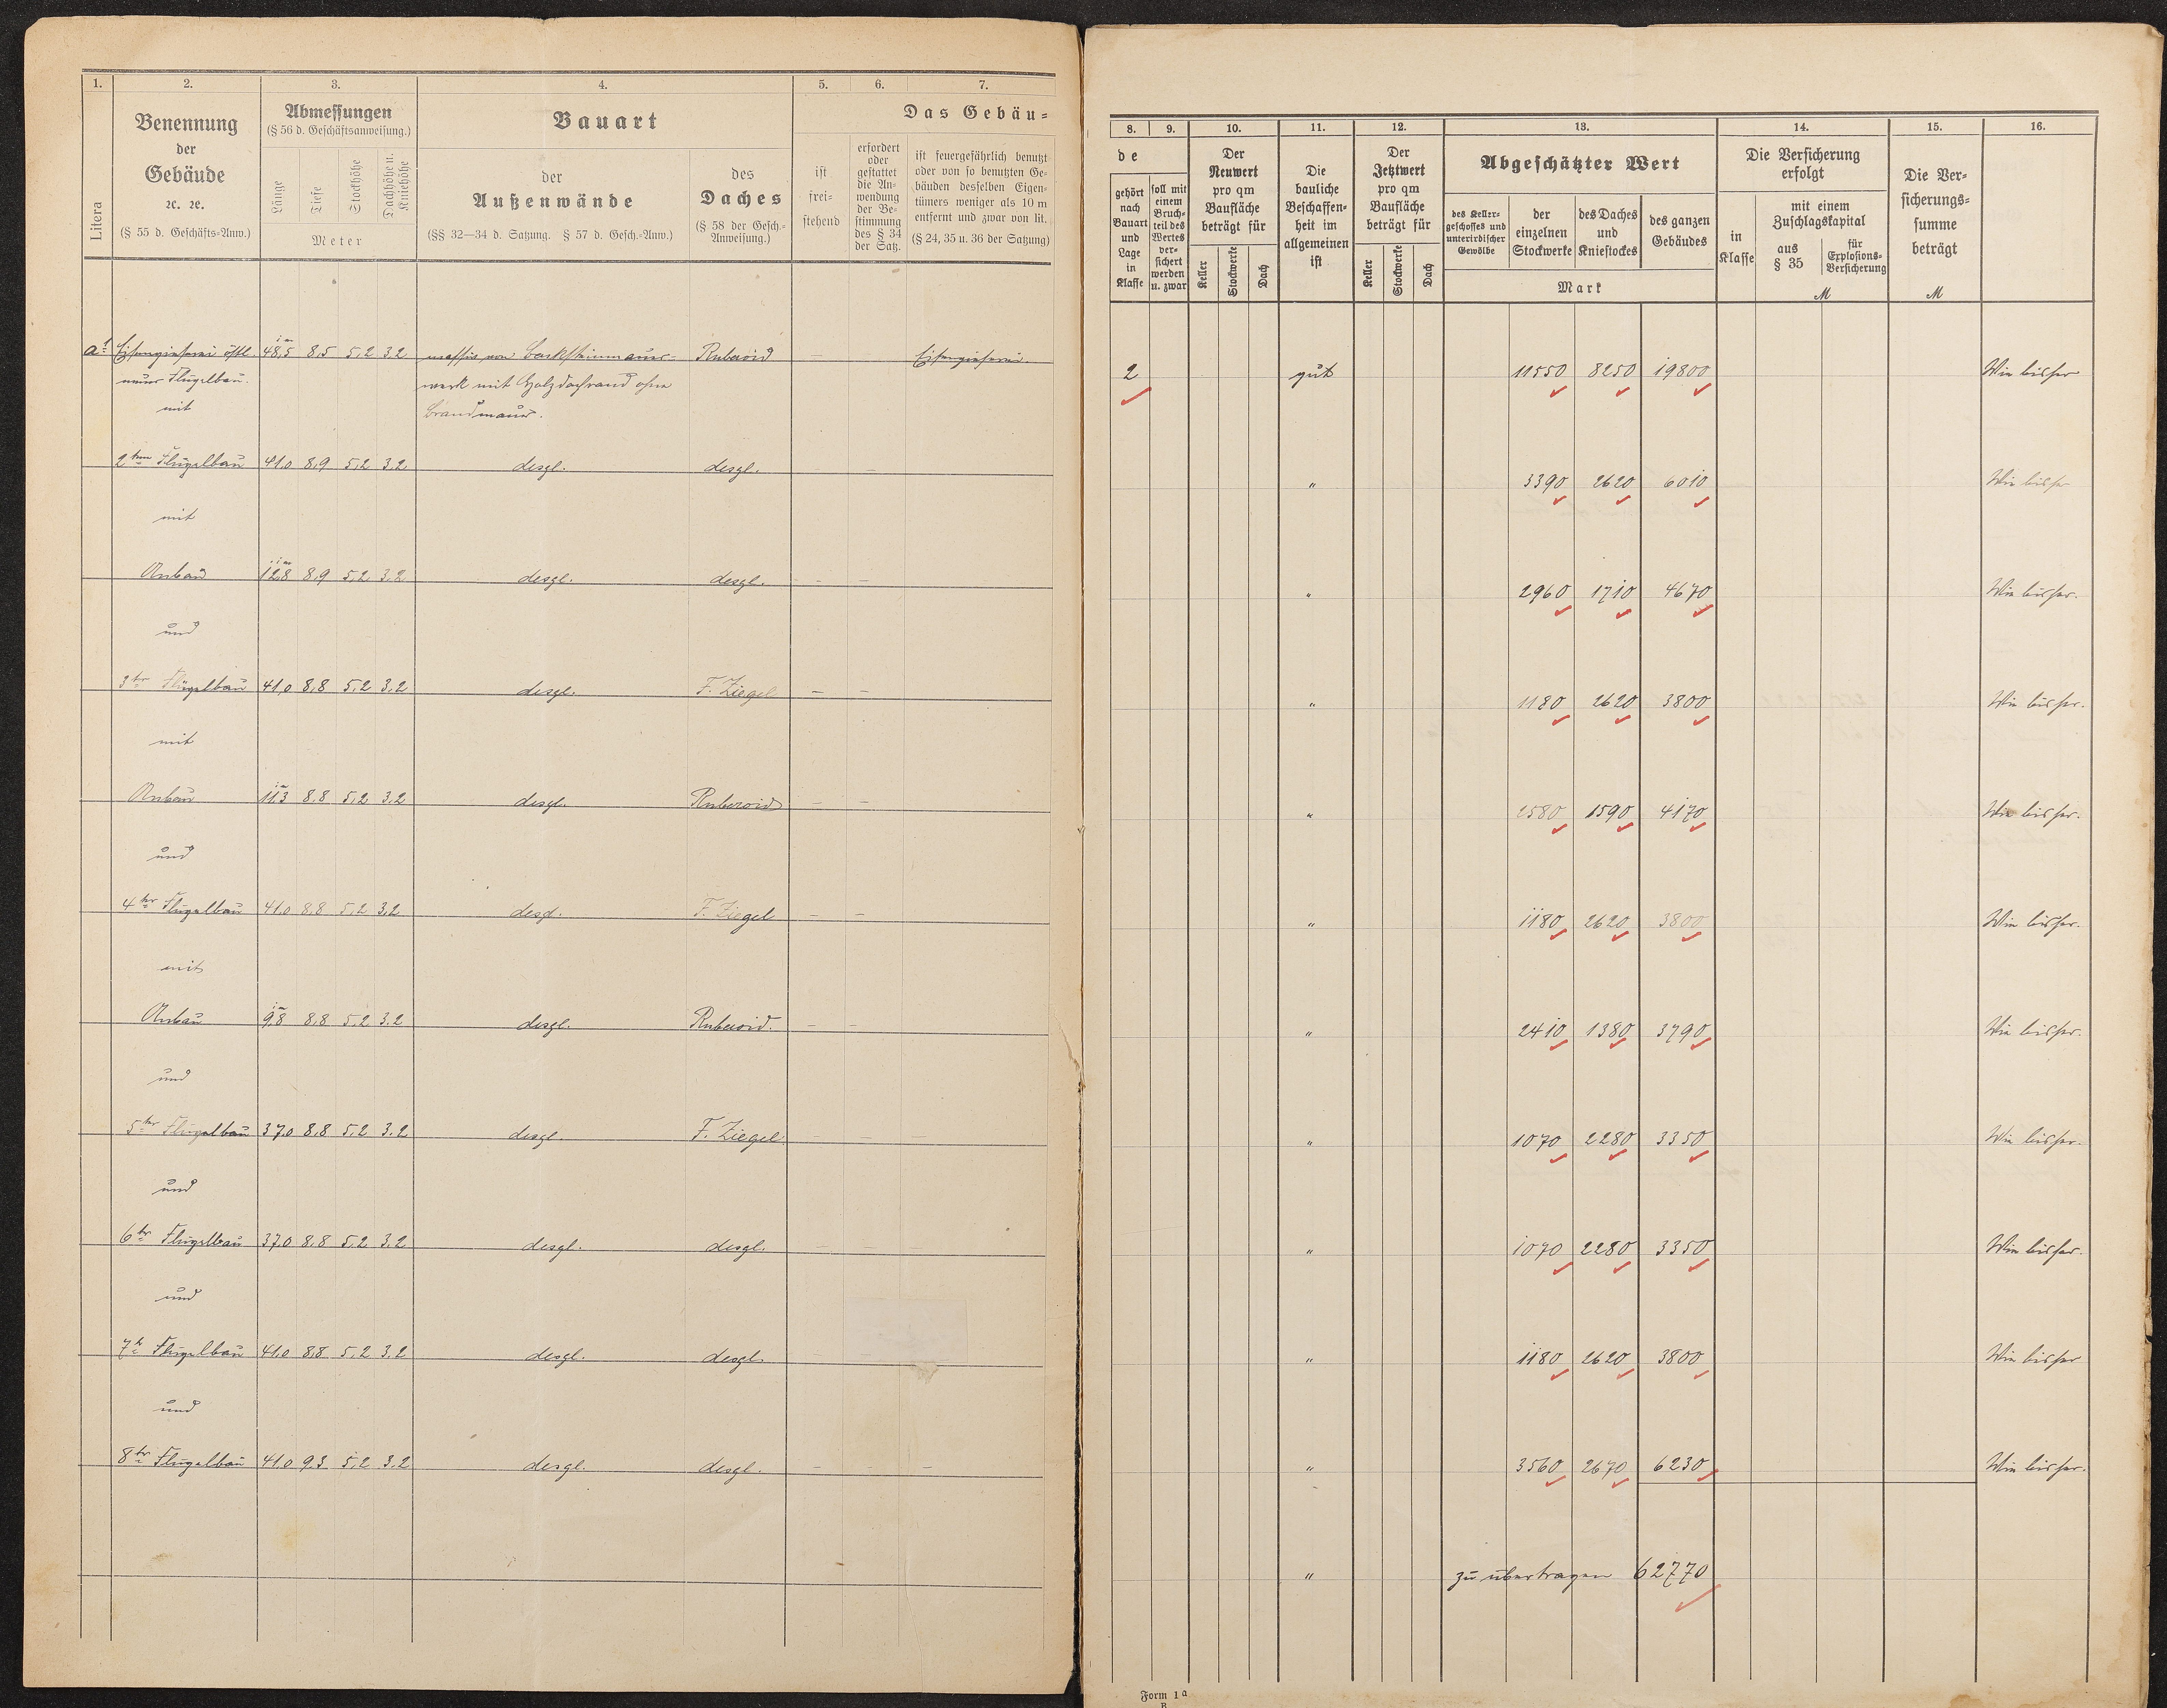 1.
2.
3.
4.
5.
6.
7.
Benennung
der
Gebäude
ꝛc. ꝛc.
(§ 55 d. Geschäfts-Anw.)
Litera
Abmessungen
(§ 56 d. Geschäftsanweisung.)
Länge
Tiefe
Stockhöhe
Dachhöhe u. Kniehöhe
Meter
Bauart
der
Außenwände
(§§ 32—34 d. Satzung. § 57 d. Gesch.-Anw.)
des
Daches
(§ 58 der Gesch.-
Anweisung.)
Das Gebäu-
ist
frei-
stehend
erfordert
oder
gestattet
die An-
wendung
der Be-
stimmung
des § 34
der Satz.
ist feuergefährlich benutzt
oder von so benutzten Ge-
bäuden desselben Eigen-
tümers weniger als 10 m
entfernt und zwar von lit.
(§ 24, 35 u. 36 der Satzung)
a1 Eisengießerei östl. 48,5 8,5 5,2 3,2 massiv von Backsteinmauer- Ruberoid Eisengießerei.
neuer Flügelbau. werk mit Holzdachrand ohne
mit Brandmauer.
2ten Flügelbau 41,0 8,9 5,2 3,2 desgl. desgl.
mit
Anbau 12,8 8,9 5,2 3,2 desgl. desgl. – –
und
3ter Flügelbau 41,0 8,8 5,2 3,2 desgl. F. Ziegel – –
mit
Anbau 11,3 8,8 5,2 3,2 desgl. Ruberoid – –
und
4ter Flügelbau 41,0 8,8 5,2 3,2 desgl. F. Ziegel – –
mit
Anbau 9,8 8,8 5,2 3,2 desgl. Ruberoid. – –
und
5ter Flügelbau 37,0 8,8 5,2 3,2 desgl. F. Ziegel – – –
und
6ter Flügelbau 37,0 8,8 5,2 3,2 desgl. desgl. – –
und
7te Flügelbau 41,0 8,8 5,2 3,2 desgl. desgl.
und
8ter Flügelbau 41,0 9,3 5,2 3,2 desgl. desgl. – –
8.
9.
10.
11.
12.
13.
14.
15.
16.
de
gehört
nach
Bauart
und
Lage
in
Klasse
soll mit
einem
Bruch-
teil des
Wertes
ver-
sichert
werden
u. zwar
Der
Neuwert
pro qm
Baufläche
beträgt für
Keller
Stockwerke
Dach
Die
bauliche
Beschaffen-
heit im
allgemeinen
ist
Der
Jetztwert
pro qm
Baufläche
beträgt für
Keller
Stockwerke
Dach
Abgeschätzter Wert
des Keller-
geschosses und
unterirdischer
Gewölbe
der
einzelnen
Stockwerke
des Daches
und
Kniestockes
des ganzen
Gebäudes
Mark
Die Versicherung
erfolgt
in
Klasse
mit einem
Zuschlagskapital
aus
§ 35
für
Explosions-
Versicherung
M
Die Ver-
sicherungs-
summe
beträgt
M
2 gut 11550 8250 19800 Wie bisher
" 3390 2620 6010 Wie bisher
" 2960 1710 4670 Wie bisher.
" 1180 2620 3800 Wie bisher.
" 2580 1590 4170 Wie bisher.
" 1180 2620 3800 Wie bisher.
" 2410 1380 3790 Wie bisher.
" 1070 2280 3350 Wie bisher.
" 1070 2280 3350 Wie bisher.
" 1180 2620 3800 Wie bisher
" 3560 2670 6230 Wie bisher.
" zu übertragen 62770
Form 1a
B